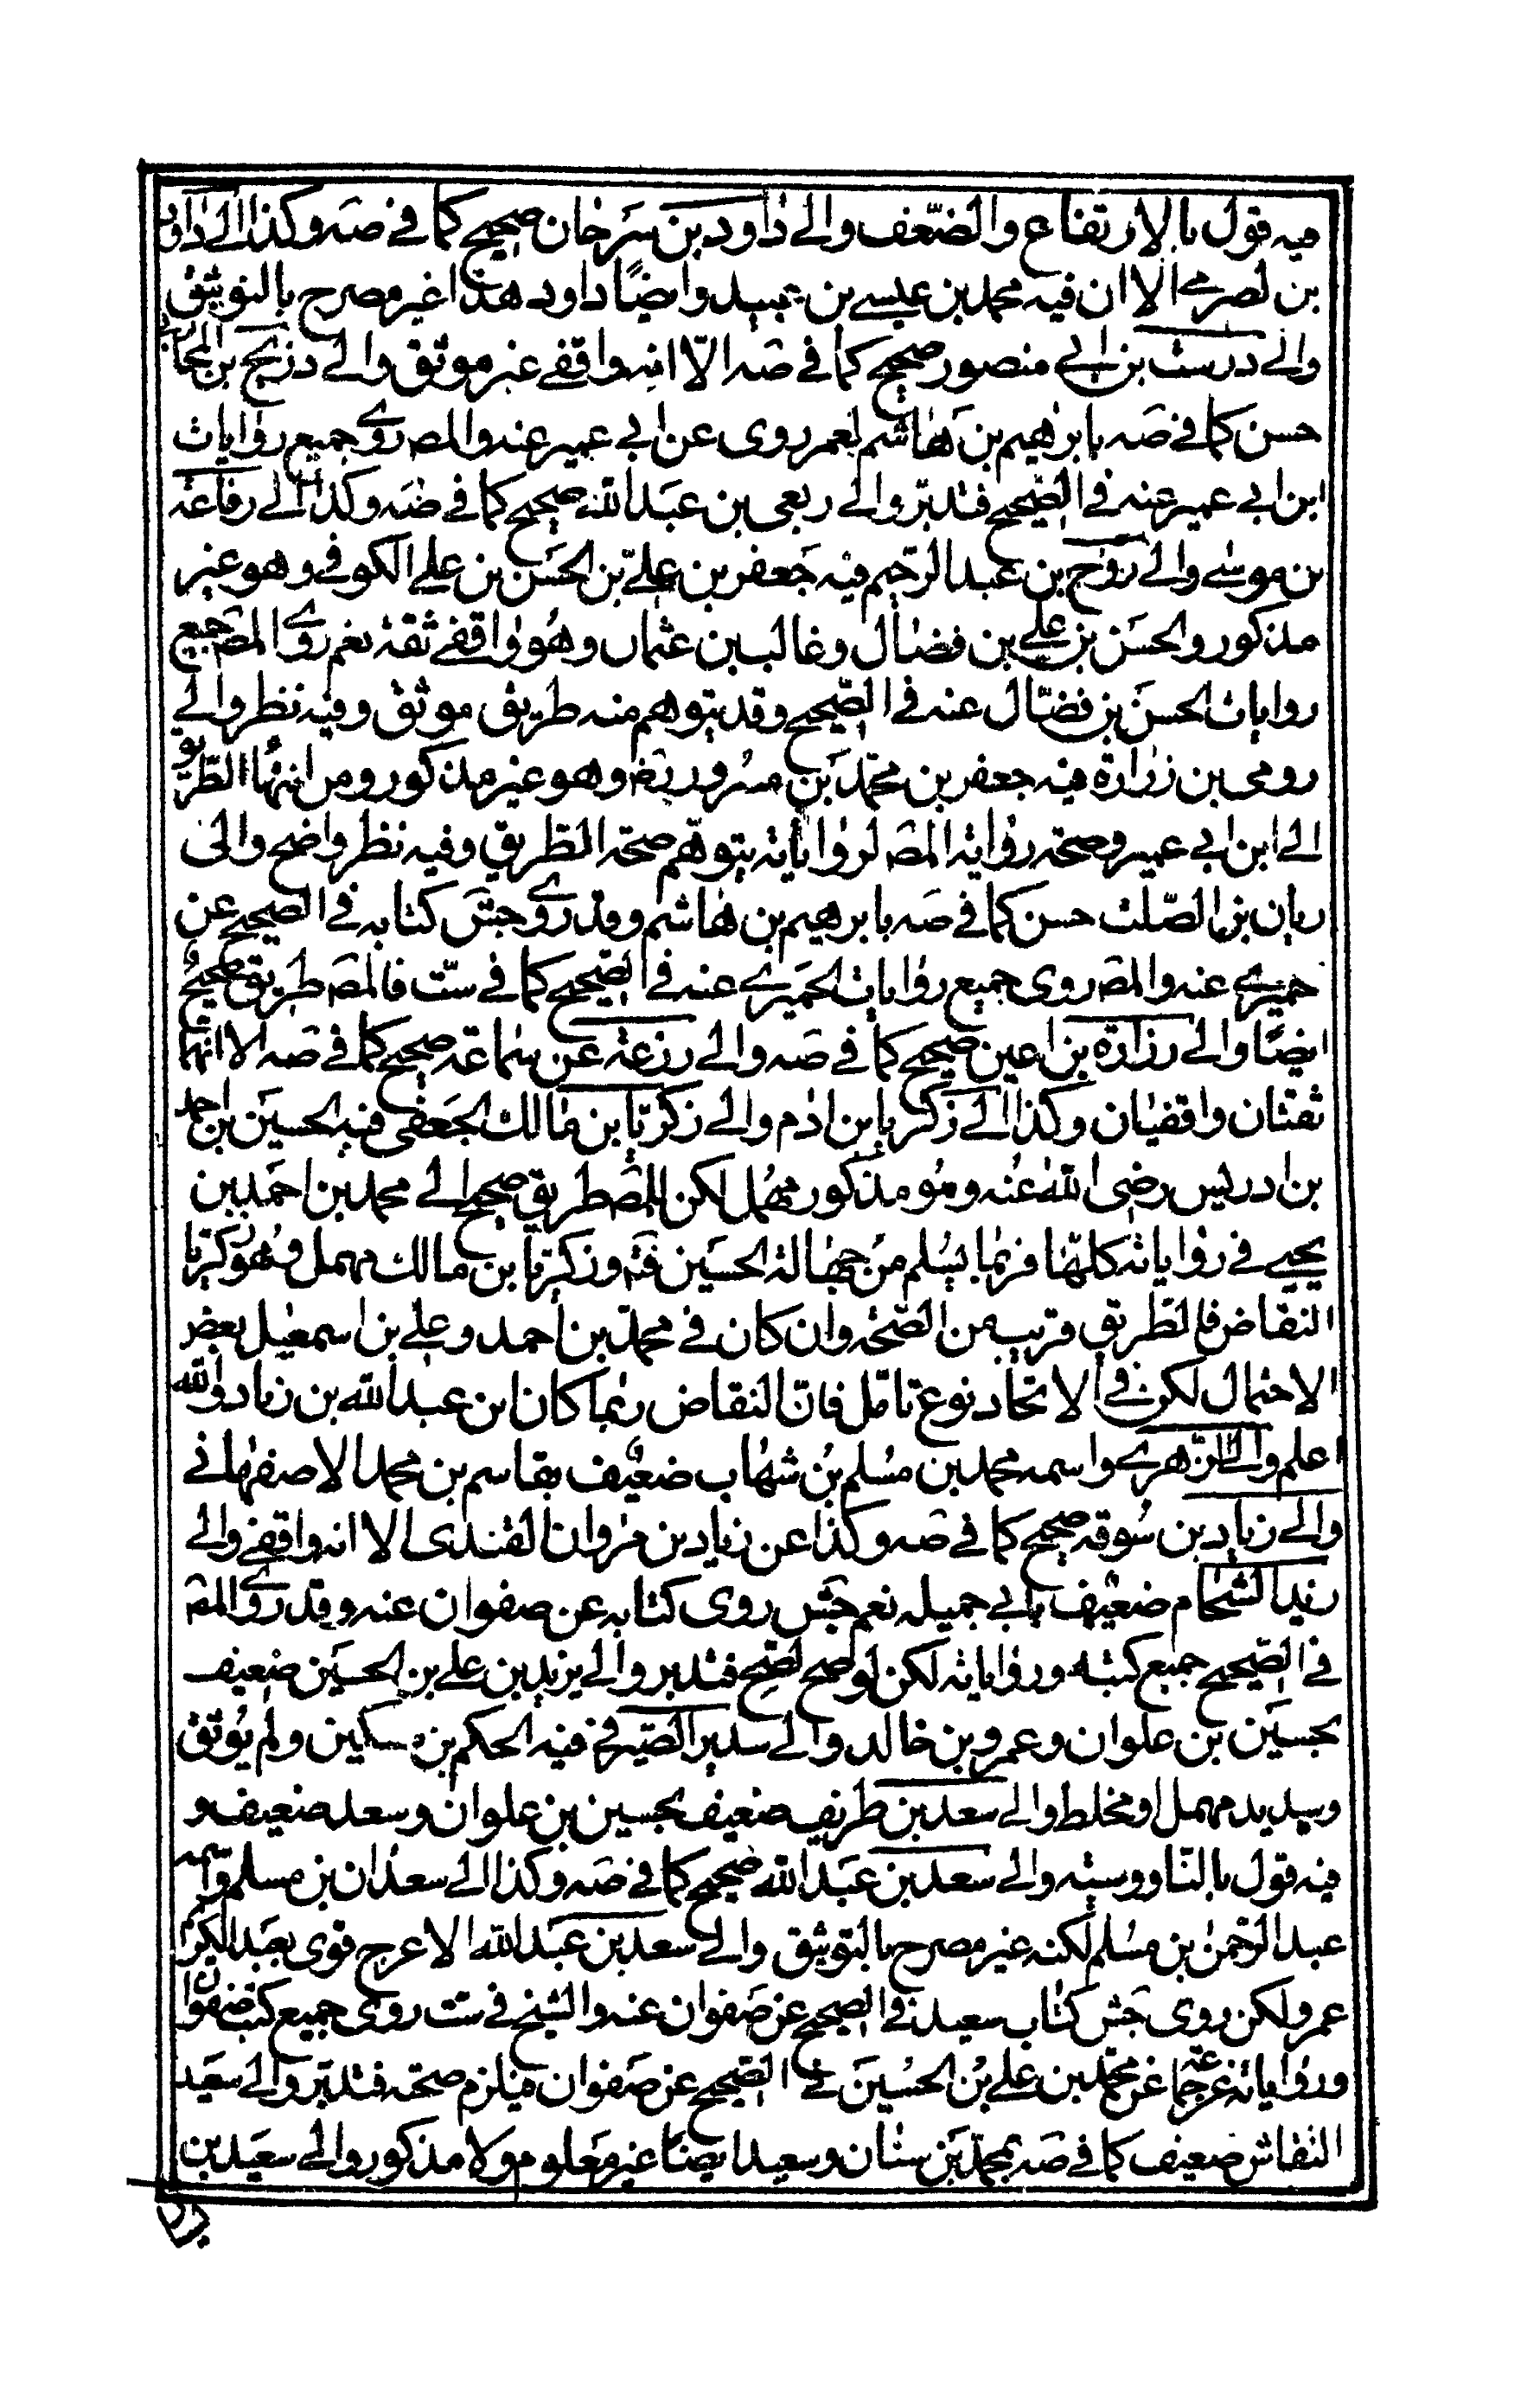 فيه قول بالارتفاع والضعف والى داود بن سرحان صحيح كما في صه وكذا الى داود
بن الصرمى الا ان فيه محمد بن عيسى بن عبيد وايضًا داود هذا غير مصرح بالتوثيق
والى درست بن ابي منصور صحيح كما في صه الّا انه واقفي غير موثق والى دزيج بن المحاربى
حسن كما في صه بابرهيم بن هاشم نعم روى عن ابي عمير عنه والمص روى جميع روايات
ابن ابي عمير عنه في الصحيح فتدبر والى ربعى بن عبد الله صحيح كما في صه وكذا الى رفاعة
بن موسى والى روح بن عبد الرحيم فيه جعفر بن علي بن الحسن بن علي الكوفي وهو غير
مذكور والحسن بن علي بن فضال وغالب بن عثمان وهو واقفي ثقة نعم روى المص جميع
روايات الحسن بن فضّال عنه في الصحيح وقد يتوهم منه طريق موثق وفيه نظر والى
رومى بن زرارة فيه جعفر بن محمد بن مسرور رضه وهو غير مذكور ومن انتهاء الطريق
الى ابن ابي عمير وصحة رواية المص لرواياته يتوهم صحة الطريق وفيه نظر واضح والى
ريان بن الصلت حسن كما في صه بابرهيم بن هاشم وقد روى جش كتابه في الصحيح عن
حميرى عنه والمص روى جميع روايات الحميرى عنه في الصحيح كما في ست فالمص طريق صحيح
ايضًا والى زرارة بن اعين صحيح كما في صه والى زرعة عن سماعة صحيح كما في صه الا انهما
ثقتان واقفيان وكذا الى زكريا بن ادم والى زكريا بن مالك الجعفى فيه الحسين بن احمد
بن ادريس رضى الله عنه وهو مذكور مهمل لكن للمص طريق صحيح الى محمد بن احمد بن
يحيى في رواياته كلها فربما يسلم من جهالة الحسين فته وزكريا بن مالك مهمل وهو زكريا
النقاض فالطريق قريب من الصحة وان كان في محمد بن احمد وعلي بن اسمعيل بعض
الاحتمال لكن في الاتحاد نوع تامّل فانّ النقاض ربما كان ابن عبد الله بن زياد والله
اعلم والى الزهرى واسمه محمد بن مسلم بن شهاب ضعيف بقاسم بن محمد الاصفهاني
والى زياد بن سوقه صحيح كما في صه وكذا عن زياد بن مروان القندى الا انه واقفي والى
زيد الشحام ضعيف بابي جميله نعم جش روى كتابه عن صفوان عنه وقد روى المص
في الصحيح جميع كتبه ورواياته لكن لوضح لصح فتدبر والى يزيد بن علي بن الحسين ضعيف
بحسين بن علوان وعمرو بن خالد والى سدير الصيرفي فيه الحكم بن مسكين ولم يوثق
وسديد مهمل او مخلط والى سعد بن طريف ضعيف بحسين بن علوان وسعد ضعيف و
فيه قول بالناووسيه والى سعد بن عبد الله صحيح كما في صه وكذا الى سعدان بن مسلم واسمه
عبد الرحمن بن مسلم لكنه غير مصرح بالتوثيق والى سعد بن عبد الله الاعرج قوى بعبد الكريم
عمرو لكن روى جش كتاب سعيد في الصحيح عن صفوان عنه والشيخ في ست روى جميع كتب صفوان
ورواياته عن جماعة عن محمد بن علي بن الحسين في الصحيح عن صفوان فيلزم صحته فتدبر والى سعيد
النقاش ضعيف كما في صه بمحمد بن سنان وسعيد ايضا غير معلوم ولا مذكور والى سعيد بن